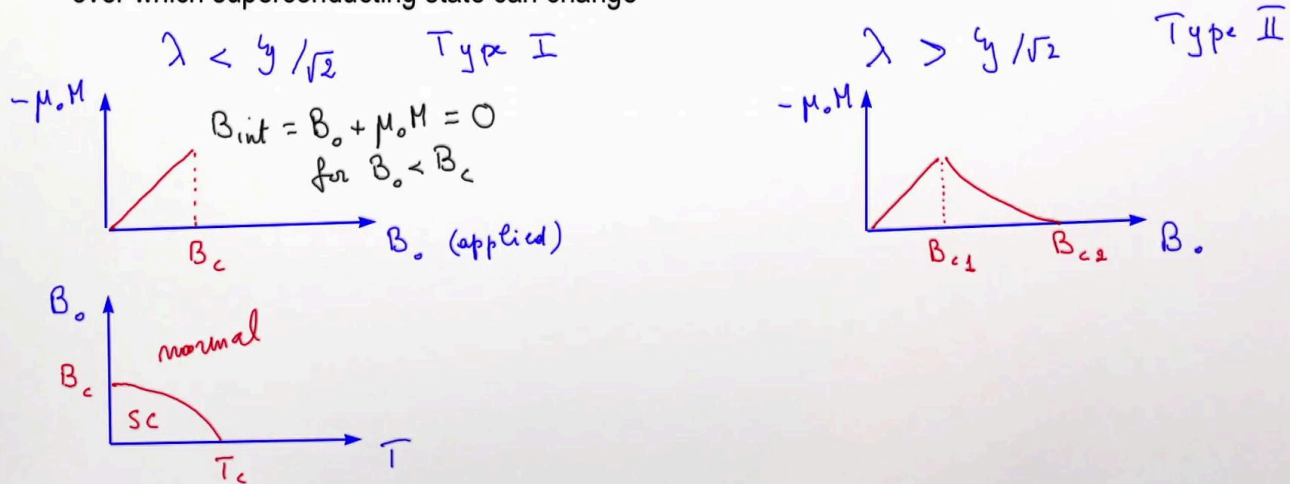 over which superconducting state can change
λ < ξ/√2 Type I
-μ₀M
B_int = B₀ + μ₀M = 0
for B₀ < B_c
B₀ (applied)
B_c
B₀
normal
B_c
SC
T
T_c
λ > ξ/√2 Type II
-μ₀M
B_c1
B_c2
B₀